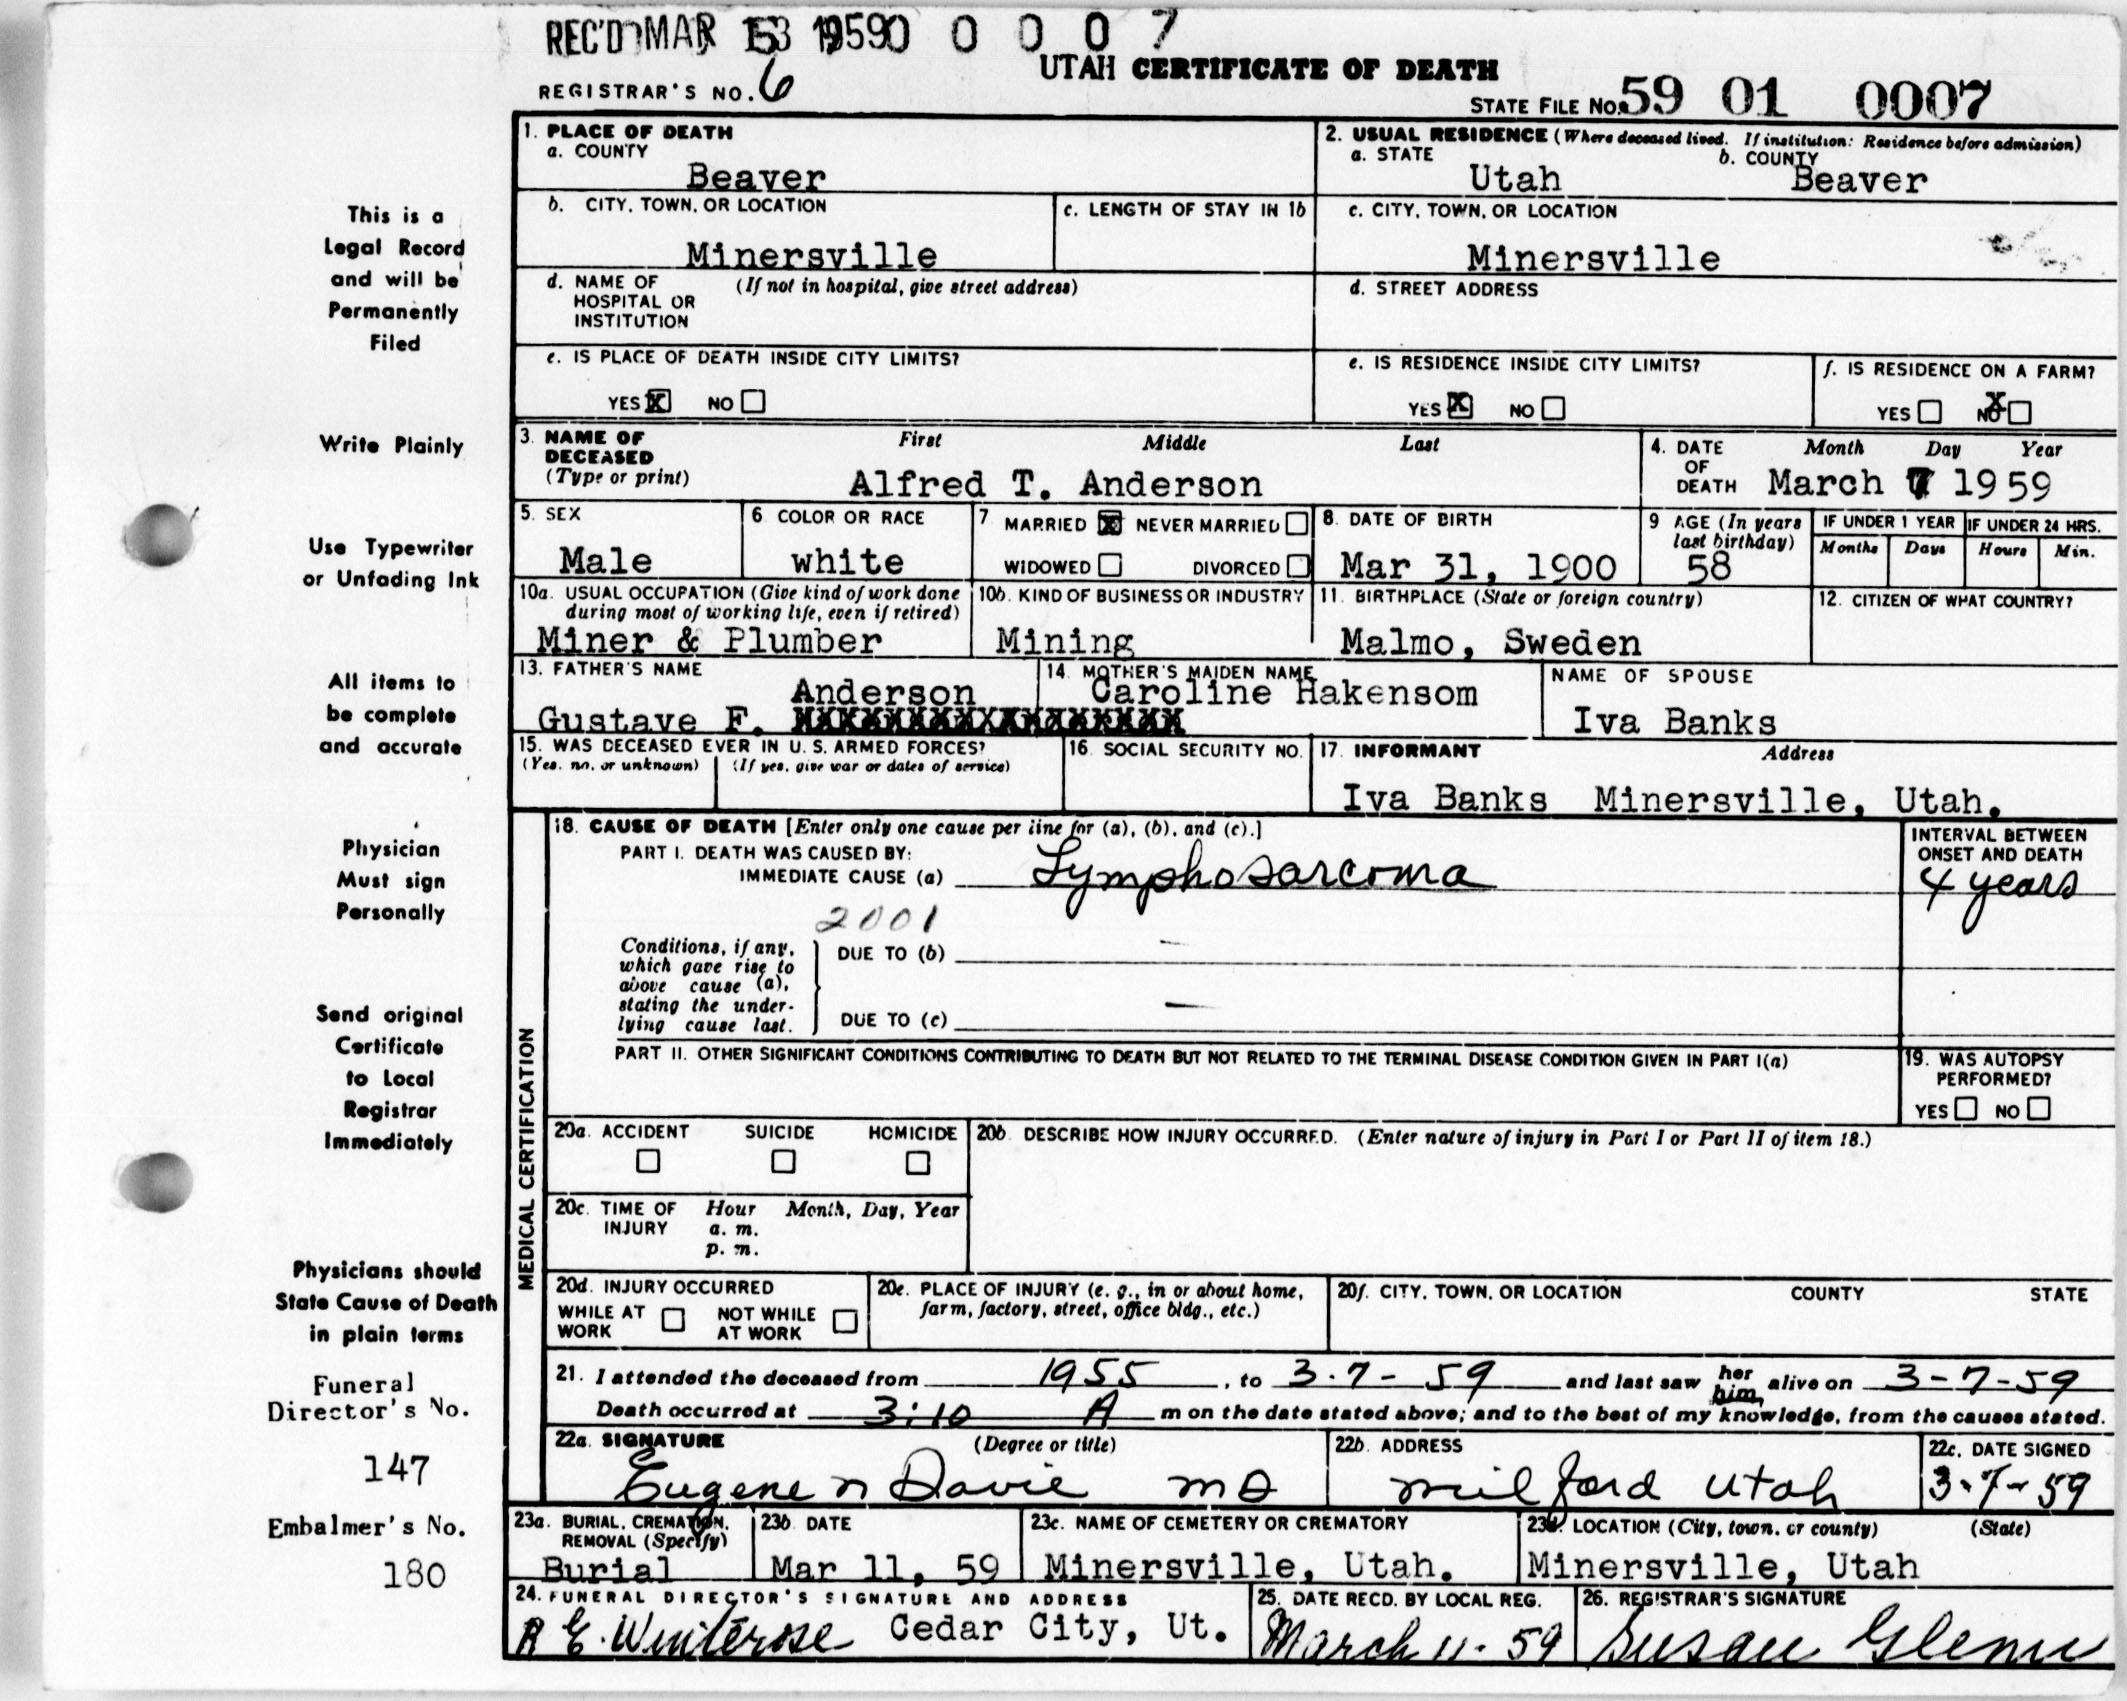 REC'D MAR 1959 0 0 0 0 7
UTAH CERTIFICATE OF DEATH
REGISTRAR'S NO. 6
STATE FILE NO. 59 01 0007
1. PLACE OF DEATH
a. COUNTY
Beaver
2. USUAL RESIDENCE (Where deceased lived. If institution: Residence before admission)
a. STATE b. COUNTY
Utah Beaver
b. CITY, TOWN, OR LOCATION
Minersville
c. LENGTH OF STAY IN 1b
c. CITY, TOWN, OR LOCATION
Minersville
d. NAME OF (If not in hospital, give street address)
HOSPITAL OR
INSTITUTION
d. STREET ADDRESS
e. IS PLACE OF DEATH INSIDE CITY LIMITS?
YES X NO
e. IS RESIDENCE INSIDE CITY LIMITS?
YES X NO
f. IS RESIDENCE ON A FARM?
YES NO X
3. NAME OF First Middle Last
DECEASED
(Type or print)
Alfred T. Anderson
4. DATE Month Day Year
OF
DEATH March 7 1959
5. SEX
Male
6. COLOR OR RACE
white
7. MARRIED X NEVER MARRIED
WIDOWED DIVORCED
8. DATE OF BIRTH
Mar 31, 1900
9 AGE (In years
last birthday)
58
IF UNDER 1 YEAR IF UNDER 24 HRS.
Months Days Hours Min.
10a. USUAL OCCUPATION (Give kind of work done
during most of working life, even if retired)
Miner & Plumber
10b. KIND OF BUSINESS OR INDUSTRY
Mining
11. BIRTHPLACE (State or foreign country)
Malmo, Sweden
12. CITIZEN OF WHAT COUNTRY?
13. FATHER'S NAME
Anderson
Gustave F.
14. MOTHER'S MAIDEN NAME
Caroline Hakensom
NAME OF SPOUSE
Iva Banks
15. WAS DECEASED EVER IN U. S. ARMED FORCES?
(Yes, no, or unknown) (If yes, give war or dates of service)
16. SOCIAL SECURITY NO.
17. INFORMANT Address
Iva Banks Minersville, Utah.
18. CAUSE OF DEATH [Enter only one cause per line for (a), (b), and (c).]
PART I. DEATH WAS CAUSED BY:
IMMEDIATE CAUSE (a) Lymphosarcoma
INTERVAL BETWEEN
ONSET AND DEATH
4 years
2001
Conditions, if any,
which gave rise to
above cause (a),
stating the under-
lying cause last.
DUE TO (b) —
DUE TO (c) —
PART II. OTHER SIGNIFICANT CONDITIONS CONTRIBUTING TO DEATH BUT NOT RELATED TO THE TERMINAL DISEASE CONDITION GIVEN IN PART I(a)
19. WAS AUTOPSY
PERFORMED?
YES NO
20a. ACCIDENT SUICIDE HOMICIDE
20b. DESCRIBE HOW INJURY OCCURRED. (Enter nature of injury in Part I or Part II of item 18.)
20c. TIME OF Hour Month, Day, Year
INJURY a. m.
p. m.
20d. INJURY OCCURRED
WHILE AT NOT WHILE
WORK AT WORK
20e. PLACE OF INJURY (e. g., in or about home,
farm, factory, street, office bldg., etc.)
20f. CITY, TOWN, OR LOCATION COUNTY STATE
21. I attended the deceased from 1955, to 3-7-59 and last saw her him alive on 3-7-59
Death occurred at 3:10 A m on the date stated above; and to the best of my knowledge, from the causes stated.
22a. SIGNATURE (Degree or title)
Eugene n Davie MD
22b. ADDRESS
milford Utah
22c. DATE SIGNED
3-7-59
23a. BURIAL, CREMATION,
REMOVAL (Specify)
Burial
23b. DATE
Mar 11, 59
23c. NAME OF CEMETERY OR CREMATORY
Minersville, Utah.
23d. LOCATION (City, town, or county) (State)
Minersville, Utah
24. FUNERAL DIRECTOR'S SIGNATURE AND ADDRESS
A E. Winterose Cedar City, Ut.
25. DATE RECD. BY LOCAL REG.
March 11-59
26. REGISTRAR'S SIGNATURE
Susan Glenn
MEDICAL CERTIFICATION
This is a
Legal Record
and will be
Permanently
Filed
Write Plainly
Use Typewriter
or Unfading Ink
All items to
be complete
and accurate
Physician
Must sign
Personally
Send original
Certificate
to Local
Registrar
Immediately
Physicians should
State Cause of Death
in plain terms
Funeral
Director's No.
147
Embalmer's No.
180